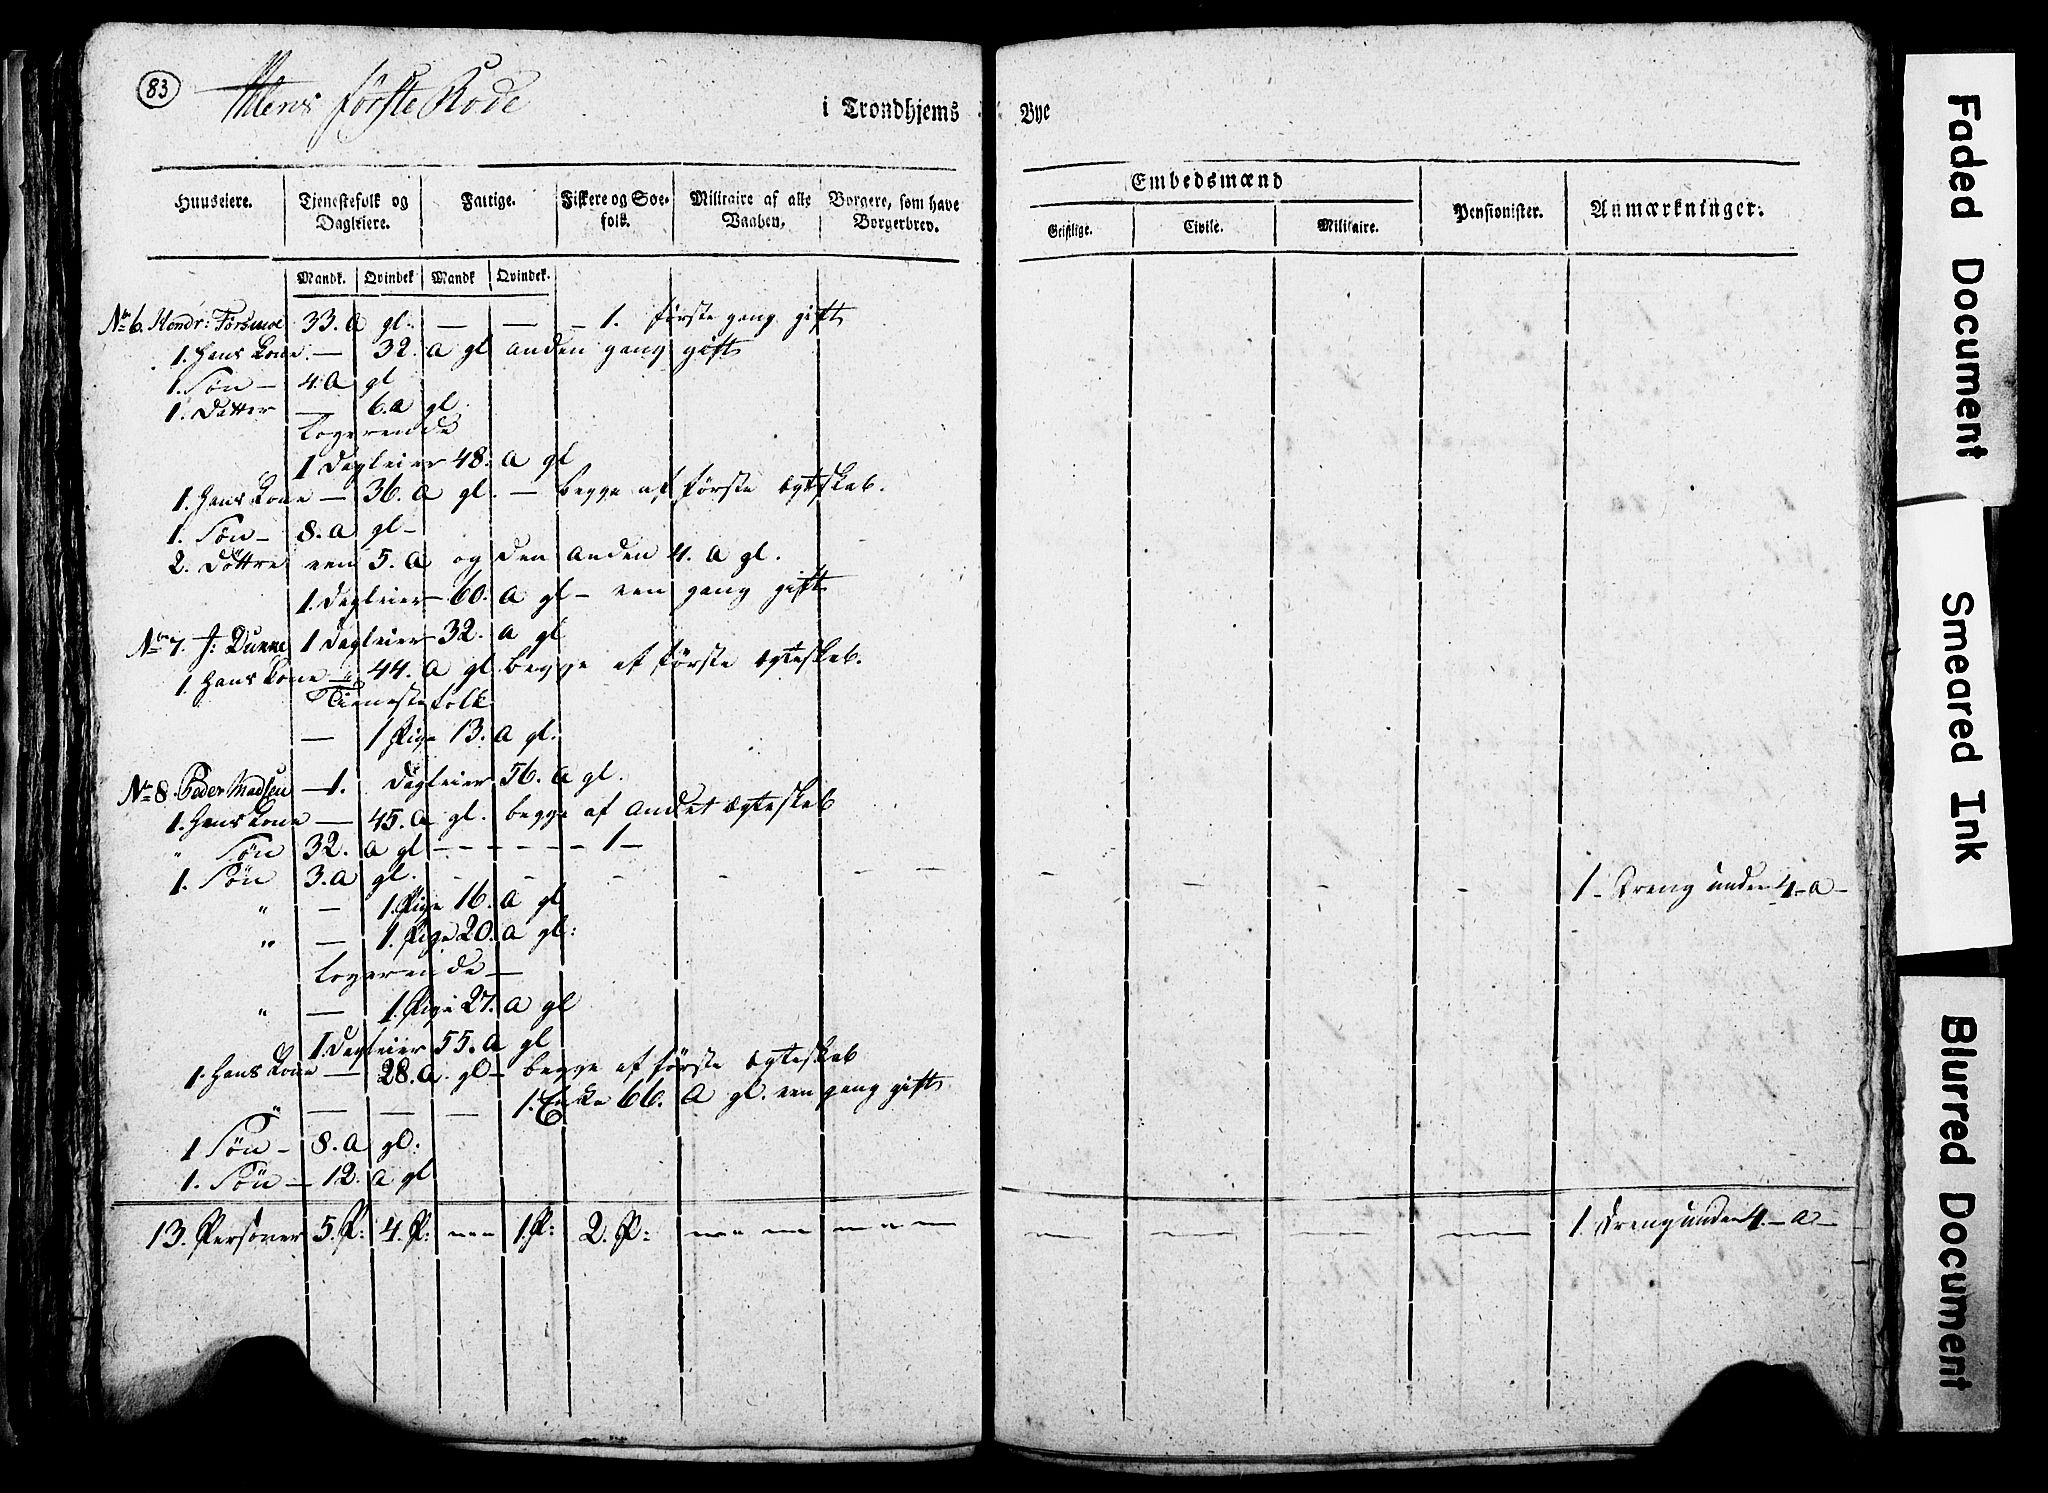 83
Ihlens første Rode
i Trondhjems
Bye
Huuseiere.
Tjenestefolk og Dagleiere.
Fattige.
Fiskere og Søefolk.
Militaire af alle Vaaben.
Borgere, som have Borgerbrev.
Embedsmænd
Geistlige.
Civile.
Militaire.
Pensionister.
Anmærkninger.
Mandk.
Qvindek
Mandk
Qvindek.
No 6. Hendr: Forsmoe 33. a gl. — — — 1. første gang gift
1. Hans Kone — 32. a gl anden gang gift
1. Søn — 4. a gl
1. Datter — 6. a gl.
Logerende
1 Dagleier 48. a gl
1. Hans Kone — 36. a gl. — begge af første Ægteskab.
1. Søn — 8. a gl —
2. Døttre een 5. a og den anden 4. a gl.
1. Dagleier — 60. a gl — een gang gift
No 7. J: Dunne 1 Dagleier 32. a gl
1. Hans Kone — 44. a gl begge af første Ægteskab.
Tienestefolk
— 1 Pige 13. a gl.
No 8. Peder Madsen — 1. Dagleier 56. a gl.
1. Hans Kone — 45. a gl. begge af Andet Ægteskab
" Søn 32. a gl — — — — — — 1 —
1. Søn 3. a gl. — — — — — — — — — 1 — Dreng under 4 — a —
" — 1. Pige 16. a gl
" — 1. Pige 20. a gl:
Logerende —
" — 1. Pige 27. a gl
1. Dagleier 55. a gl
1. Hans Kone — 28. a. gl — begge af første Ægteskab
" — — — 1. Enke 66. a gl. een gang gift
1 Søn — 8. a gl:
1. Søn — 12. a gl
13. Personer 5. P: 4. P: — — — 1. P: 2. P: — — — — — — — — — 1. Dreng under 4. — a —
Faded Document
Smeared Ink
Blurred Document